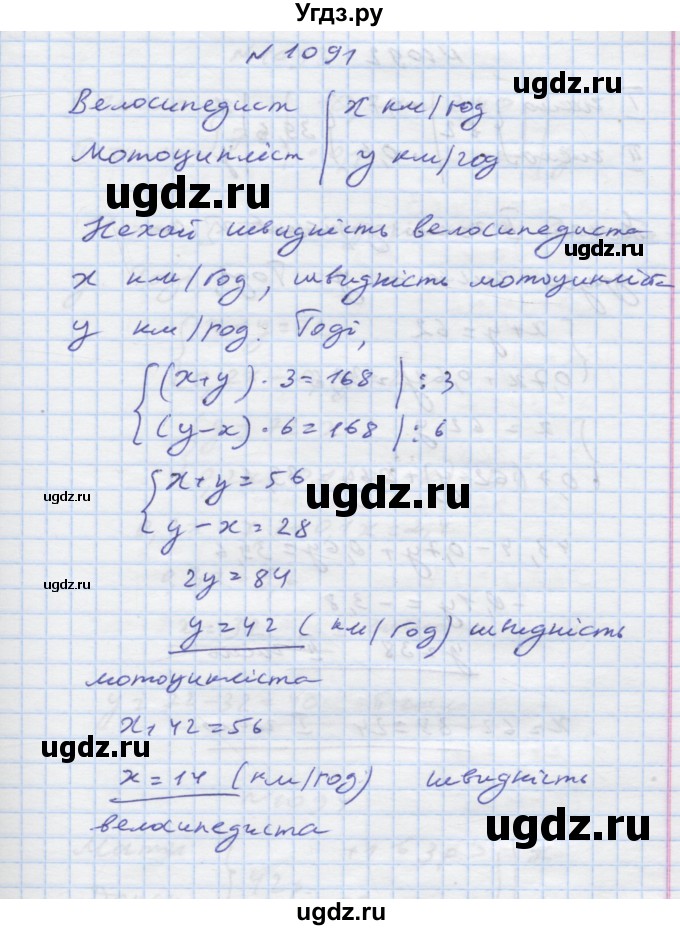 Угдз.ру
N 1091
ugdz.ru
Велосипедист | х км/год
Мотоцикліст | у км/год
ugdz.ru
ugdz.ru
Нехай швидкість велосипедиста
ugdz.ru
х км/год, швидкість мотоцикліста
у км/год. Тоді,
{(х+у)·3=168 |:3
(у-х)·6=168 |:6
{х+у=56
ugdz.ru
ugdz.ru
у-х=28
2у=84
ugdz.ru
у=42 (км/год) швидкість
мотоцикліста
х+42=56
ugdz.ru
х=14 (км/год) швидкість
велосипедиста
ugdz.ru
ugdz.ru